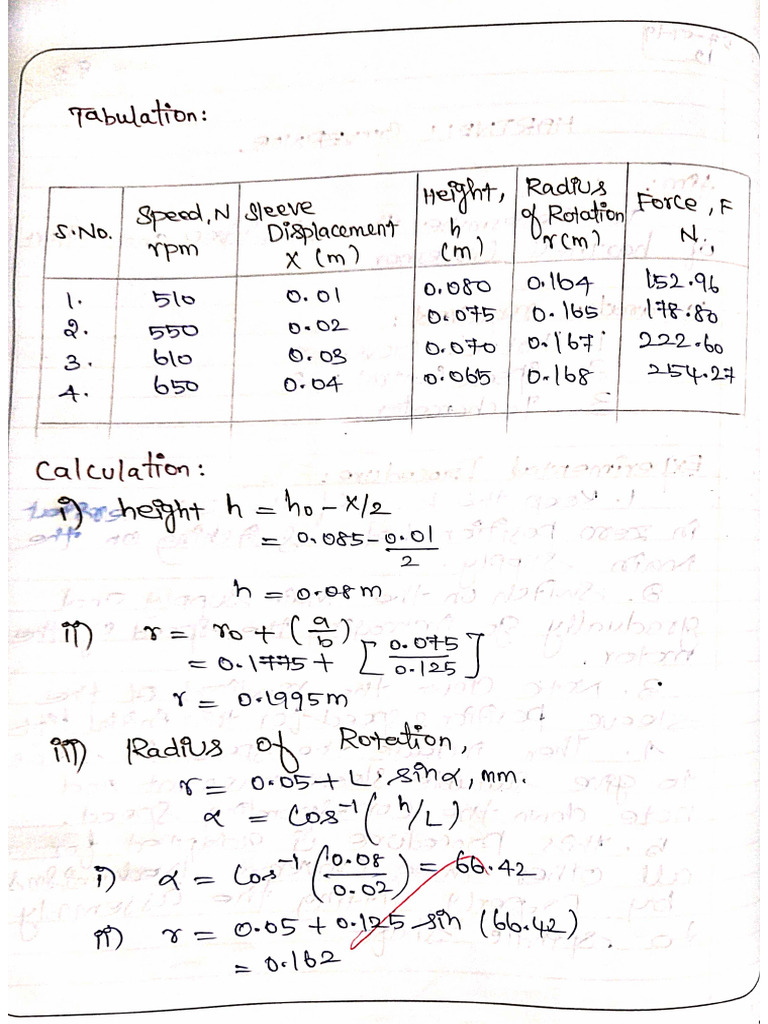 Tabulation:
S.No. | Speed, N rpm | Sleeve Displacement X (m) | Height, h (m) | Radius of Rotation r (m) | Force, F N.
1. | 510 | 0.01 | 0.080 | 0.164 | 152.96
2. | 550 | 0.02 | 0.075 | 0.165 | 178.80
3. | 610 | 0.03 | 0.070 | 0.167 | 222.60
4. | 650 | 0.04 | 0.065 | 0.168 | 254.27
Calculation:
i) height h = h0 - X/2
= 0.085 - 0.01/2
h = 0.08m
ii) r = r0 + (a/b)
= 0.1775 + [0.075/0.125]
r = 0.1995m
iii) Radius of Rotation,
r = 0.05 + L sinα, mm.
α = Cos⁻¹ (h/L)
i) α = Cos⁻¹ (0.08/0.02) = 66.42
ii) r = 0.05 + 0.125 sin (66.42)
= 0.162